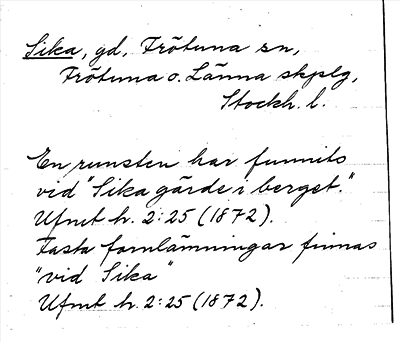 Sika, gd, Frötuna sn,
Frötuna o. Länna skplg,
Stockh. l.
En runsten har funnits
vid "Sika gärde i berget."
Ufmt h. 2:25 (1872).
Fasta fornlämningar finnas
"vid Sika"
Ufmt h. 2:25 (1872).